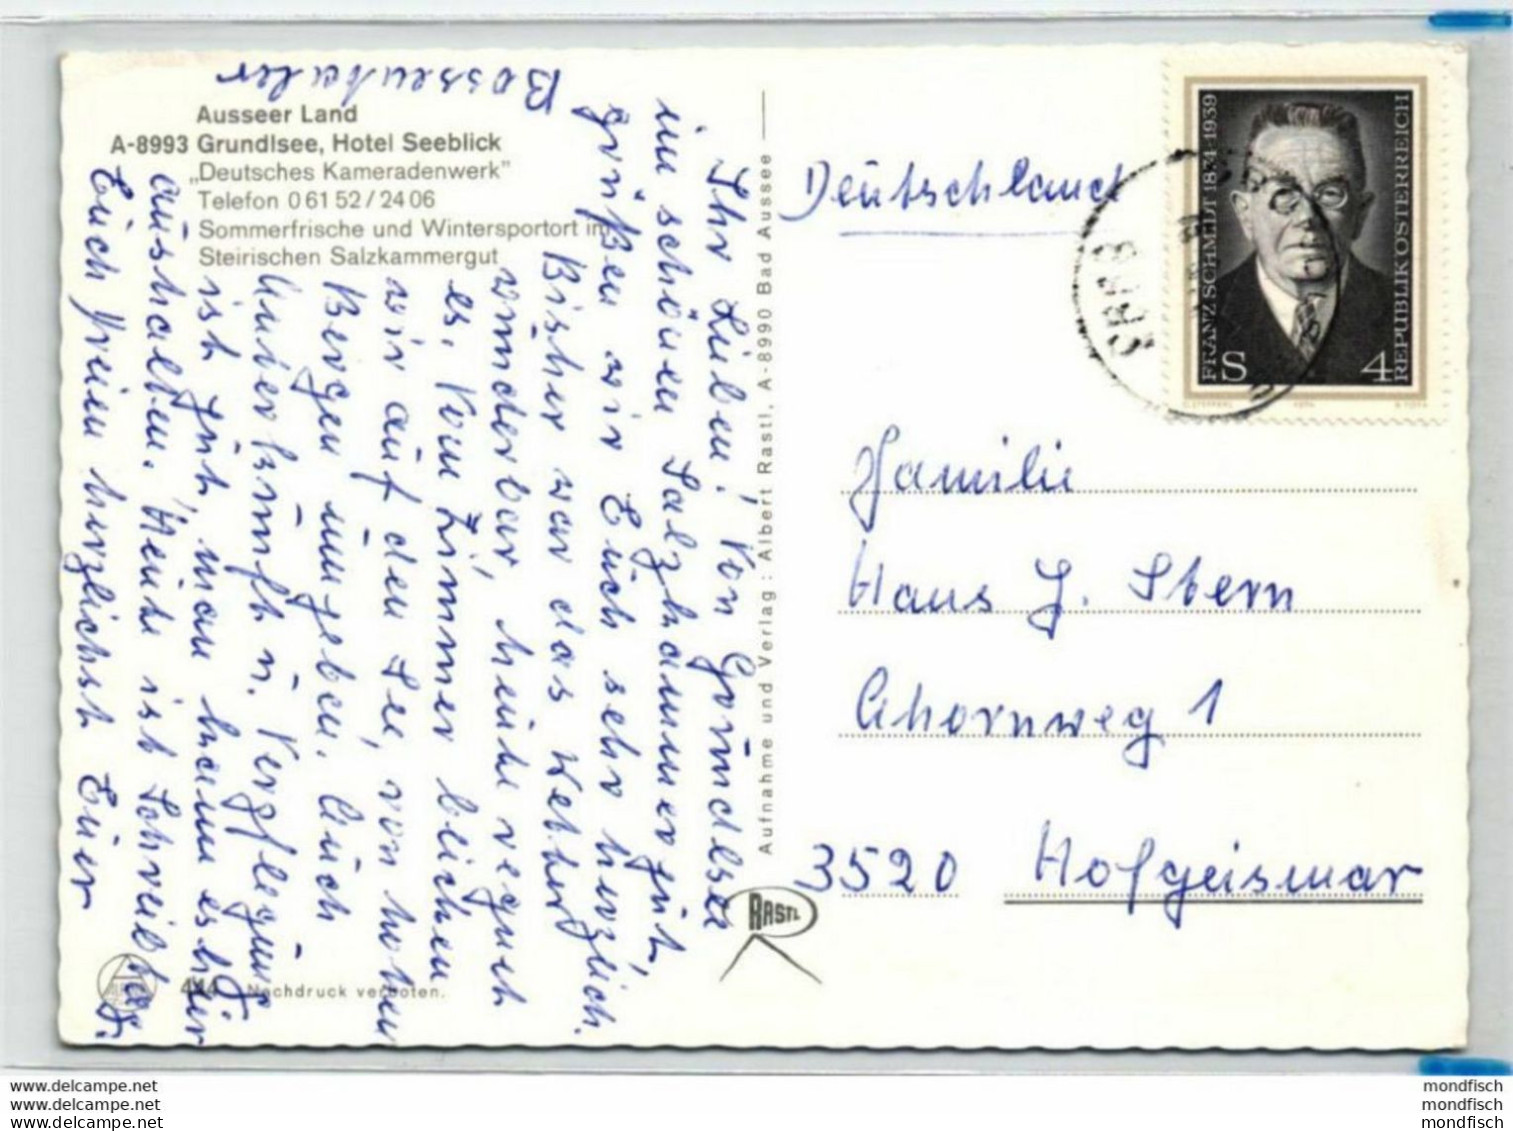 Ausseer Land
A-8993 Grundlsee, Hotel Seeblick
„Deutsches Kameradenwerk"
Telefon 0 61 52 / 24 06
Sommerfrische und Wintersportort im
Steirischen Salzkammergut
Ihr Lieben! Von Grundlsee
im schönen Salzkammergut,
grüßen wir Euch sehr herzlich.
Bisher war das Wetter
wunderbar, heute regnet
es. Vom Zimmer blicken
wir auf den See, von hohen
Bergen umgeben. Auch
Unterkunft u. Verpflegung
ist gut, man kann es hier
aushalten. Heute ist Schreibtag.
Euch Yreim herzlichst Eure
Bossenbaler
Aufnahme und Verlag: Albert Rastl, A-8990 Bad Aussee
RASTL
444 Nachdruck verboten.
Deutschland
8993
FRANZ SCHMIDT 1874-1939
S 4
REPUBLIK ÖSTERREICH
1974
Familie
Hans J. Stern
Ahornweg 1
3520 Hofgeismar
www.delcampe.net
www.delcampe.net
www.delcampe.net
mondfisch
mondfisch
mondfisch